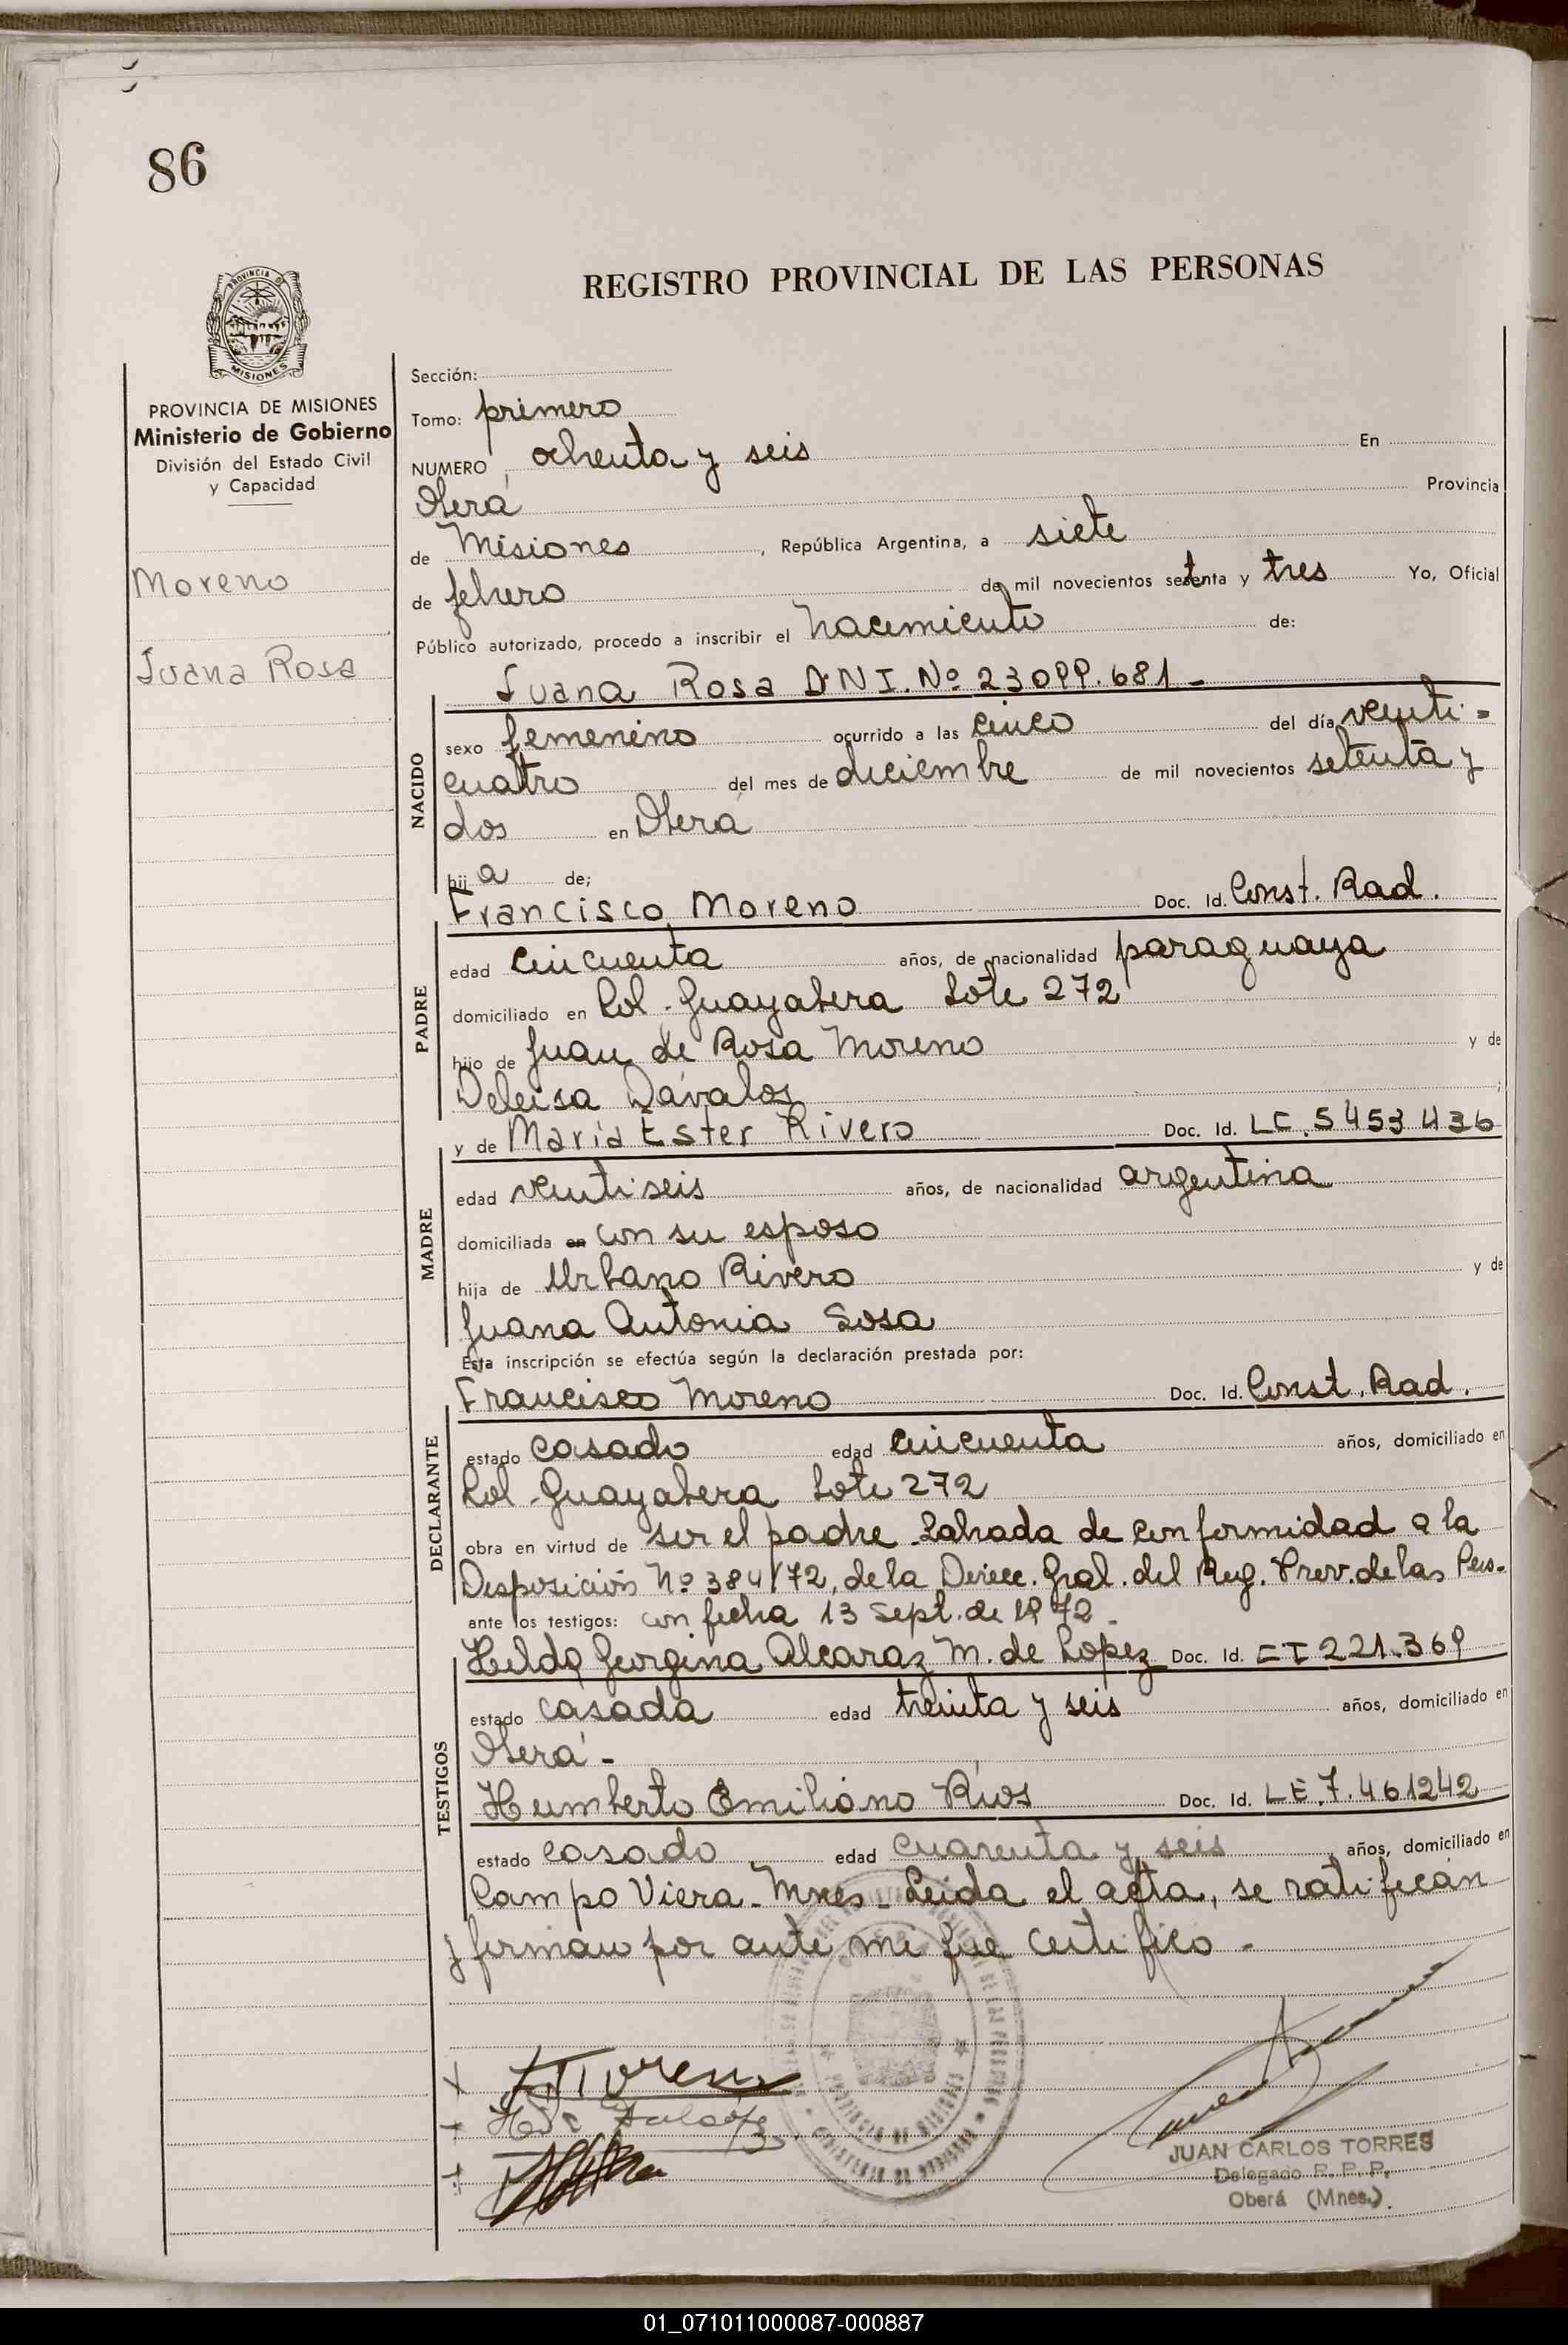 86
REGISTRO PROVINCIAL DE LAS PERSONAS
PROVINCIA DE
MISIONES
PROVINCIA DE MISIONES
Ministerio de Gobierno
División del Estado Civil
y Capacidad
Moreno
Juana Rosa
Sección:
Tomo: primero
NUMERO ochenta y seis En
Oberá Provincia
de Misiones, República Argentina, a siete
de febrero de mil novecientos setenta y tres Yo, Oficial
Público autorizado, procedo a inscribir el nacimiento de:
Juana Rosa DNI. Nº 23099.681-
NACIDO
sexo femenino ocurrido a las cinco del día venti=
cuatro del mes de diciembre de mil novecientos setenta y
dos en Oberá
hija de;
Francisco Moreno Doc. Id. Const. Rad.
PADRE
edad cincuenta años, de nacionalidad paraguaya
domiciliado en Col. Guayabera Lote 272
hijo de Juan de Rosa Moreno y de
Deleisa Dávalos;
y de María Ester Rivero Doc. Id. LC. 5453436
MADRE
edad ventiseis años, de nacionalidad argentina
domiciliada en con su esposo
hija de Urbano Rivero y de
Juana Antonia Sosa
Esta inscripción se efectúa según la declaración prestada por:
Francisco Moreno Doc. Id. Const. Rad.
DECLARANTE
estado casado edad cincuenta años, domiciliado en
Col. Guayabera Lote 272
obra en virtud de ser el padre. Labrada de conformidad a la
Disposición Nº 384/72, de la Direcc. Gral. del Reg. Prov. de las Pers.
ante los testigos: con fecha 13 Sept. de 1972.
Hilda Georgina Alcaraz M. de Lopez Doc. Id. CI 221.369
TESTIGOS
estado casada edad treinta y seis años, domiciliado en
Oberá-
Humberto Emiliano Ríos Doc. Id. LE. 7.461242
estado casado edad cuarenta y seis, años, domiciliado en
Campo Viera-Mnes- Leida el acta, se ratifican
y firman por ante mi que certifico-
JUAN CARLOS TORRES
Delegado R. P. P.
Oberá (Mnes.).
PROVINCIA DE MISIONES
01_071011000087-000887